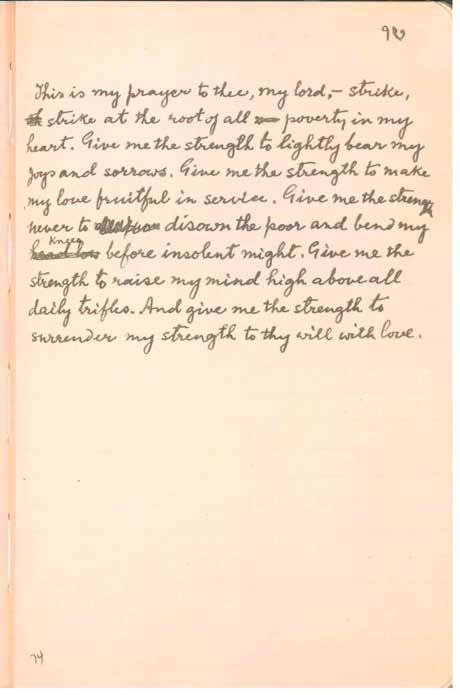 This is my prayer to thee, my lord,– strike,
strike at the root of all poverty in my
heart. Give me the strength to lightly bear my
joys and sorrows. Give me the strength to make
my love fruitful in service. Give me the strength
never to disown the poor and bend my
knees before insolent might. Give me the
strength to raise my mind high above all
daily trifles. And give me the strength to
surrender my strength to thy will with love.
74